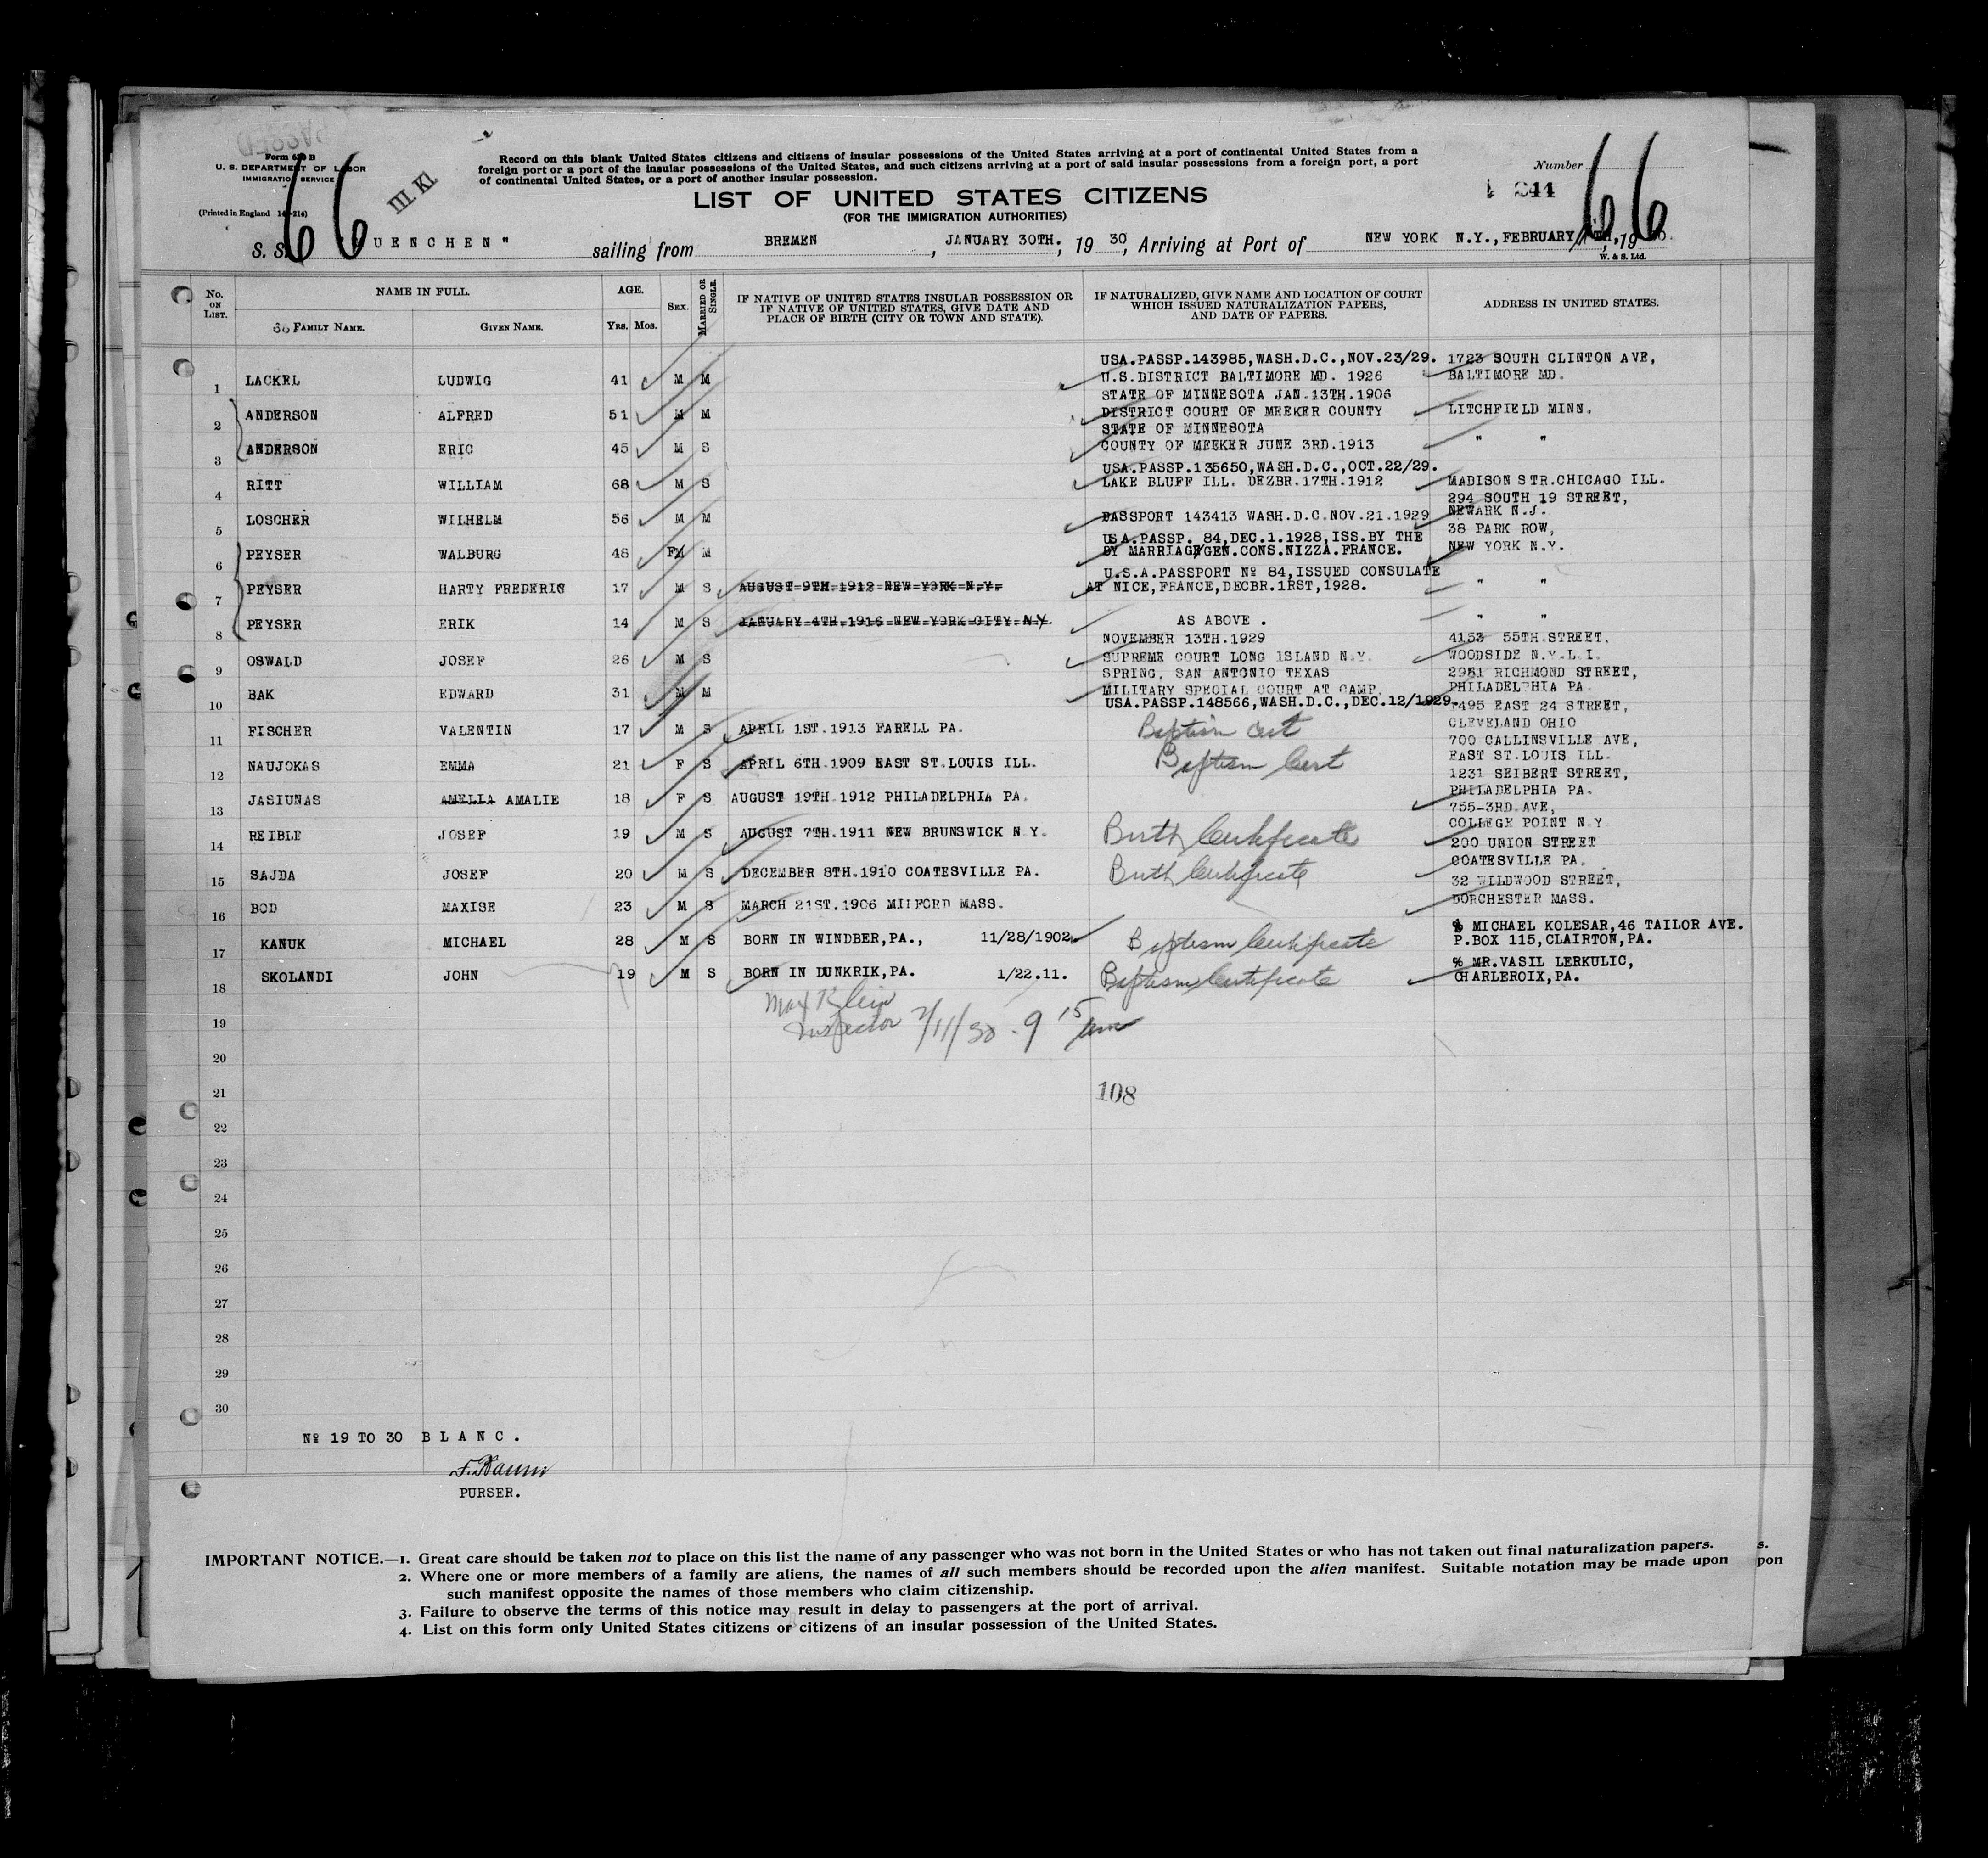 Form 630 B
U. S. DEPARTMENT OF LABOR
IMMIGRATION SERVICE
(Printed in England 14-214)
III. Kl.
66
Record on this blank United States citizens and citizens of insular possessions of the United States arriving at a port of continental United States from a
foreign port or a port of the insular possessions of the United States, and such citizens arriving at a port of said insular possessions from a foreign port, a port
of continental United States, or a port of another insular possession.
Number
66
LIST OF UNITED STATES CITIZENS
(FOR THE IMMIGRATION AUTHORITIES)
S. S. UENCHEN" sailing from BREMEN, JANUARY 30TH., 19 30, Arriving at Port of NEW YORK N.Y., FEBRUARY 19
W. & S. Ltd.
No. ON LIST. NAME IN FULL. AGE. SEX. MARRIED OR SINGLE. IF NATIVE OF UNITED STATES INSULAR POSSESSION OR IF NATIVE OF UNITED STATES, GIVE DATE AND PLACE OF BIRTH (CITY OR TOWN AND STATE). IF NATURALIZED, GIVE NAME AND LOCATION OF COURT WHICH ISSUED NATURALIZATION PAPERS, AND DATE OF PAPERS. ADDRESS IN UNITED STATES.
FAMILY NAME. GIVEN NAME. YRS. MOS.
USA.PASSP.143985,WASH.D.C.,NOV.23/29. 1723 SOUTH CLINTON AVE,
1 LACKEL LUDWIG 41 M M U.S.DISTRICT BALTIMORE MD. 1926 BALTIMORE MD.
STATE OF MINNESOTA JAN.13TH.1906
2 ANDERSON ALFRED 51 M M DISTRICT COURT OF MEEKER COUNTY LITCHFIELD MINN.
STATE OF MINNESOTA
3 ANDERSON ERIC 45 M S COUNTY OF MEEKER JUNE 3RD.1913 " "
USA.PASSP.135650,WASH.D.C.,OCT.22/29.
4 RITT WILLIAM 68 M S LAKE BLUFF ILL. DEZBR.17TH.1912 MADISON STR.CHICAGO ILL.
294 SOUTH 19 STREET,
5 LOSCHER WILHELM 56 M M PASSPORT 143413 WASH.D.C.NOV.21.1929 NEWARK N.J.
USA.PASSP. 84,DEC.1.1928,ISS.BY THE 38 PARK ROW,
6 PEYSER WALBURG 48 F M BY MARRIAGE/GEN.CONS.NIZZA.FRANCE. NEW YORK N.Y.
U.S.A.PASSPORT Nº 84,ISSUED CONSULATE
7 PEYSER HARTY FREDERIC 17 M S AUGUST 9TH.1912 NEW YORK N.Y. AT NICE,FRANCE,DECBR.1RST,1928. " "
8 PEYSER ERIK 14 M S JANUARY 4TH.1916 NEW YORK CITY N.Y. AS ABOVE . " "
NOVEMBER 13TH.1929 4153 55TH.STREET,
9 OSWALD JOSEF 26 M S SUPREME COURT LONG ISLAND N.Y. WOODSIDE N.Y.L.I.
SPRING, SAN ANTONIO TEXAS 2951 RICHMOND STREET,
10 BAK EDWARD 31 M M MILITARY SPECIAL COURT AT CAMP. PHILADELPHIA PA.
USA.PASSP.148566,WASH.D.C.,DEC.12/1929. 495 EAST 24 STREET,
11 FISCHER VALENTIN 17 M S APRIL 1ST.1913 FARELL PA. Baptism Cert CLEVELAND OHIO
700 CALLINSVILLE AVE,
12 NAUJOKAS EMMA 21 F S APRIL 6TH.1909 EAST ST.LOUIS ILL. Baptism Cert EAST ST.LOUIS ILL.
1231 SEIBERT STREET,
13 JASIUNAS AMELIA AMALIE 18 F S AUGUST 19TH.1912 PHILADELPHIA PA. PHILADELPHIA PA.
755-3RD AVE,
14 REIBLE JOSEF 19 M S AUGUST 7TH.1911 NEW BRUNSWICK N.Y. Birth Certificate COLLEGE POINT N.Y.
200 UNION STREET
15 SAJDA JOSEF 20 M S DECEMBER 8TH.1910 COATESVILLE PA. Birth Certificate COATESVILLE PA.
32 WILDWOOD STREET,
16 BOD MAXISE 23 M S MARCH 21ST.1906 MILFORD MASS. DORCHESTER MASS.
℅ MICHAEL KOLESAR,46 TAILOR AVE.
17 KANUK MICHAEL 28 M S BORN IN WINDBER,PA., 11/28/1902 Baptism Certificate P.BOX 115,CLAIRTON,PA.
℅ MR.VASIL LERKULIC,
18 SKOLANDI JOHN 19 M S BORN IN DUNKRIK,PA. 1/22.11. Baptism Certificate CHARLEROIX,PA.
Max Klein
19 Inspector 2/11/30 - 9 15 am
20
21 108
22
23
24
25
26
27
28
29
30
Nº 19 TO 30 B L A N C .
PURSER.
IMPORTANT NOTICE.—1. Great care should be taken not to place on this list the name of any passenger who was not born in the United States or who has not taken out final naturalization papers.
2. Where one or more members of a family are aliens, the names of all such members should be recorded upon the alien manifest. Suitable notation may be made upon
such manifest opposite the names of those members who claim citizenship.
3. Failure to observe the terms of this notice may result in delay to passengers at the port of arrival.
4. List on this form only United States citizens or citizens of an insular possession of the United States.